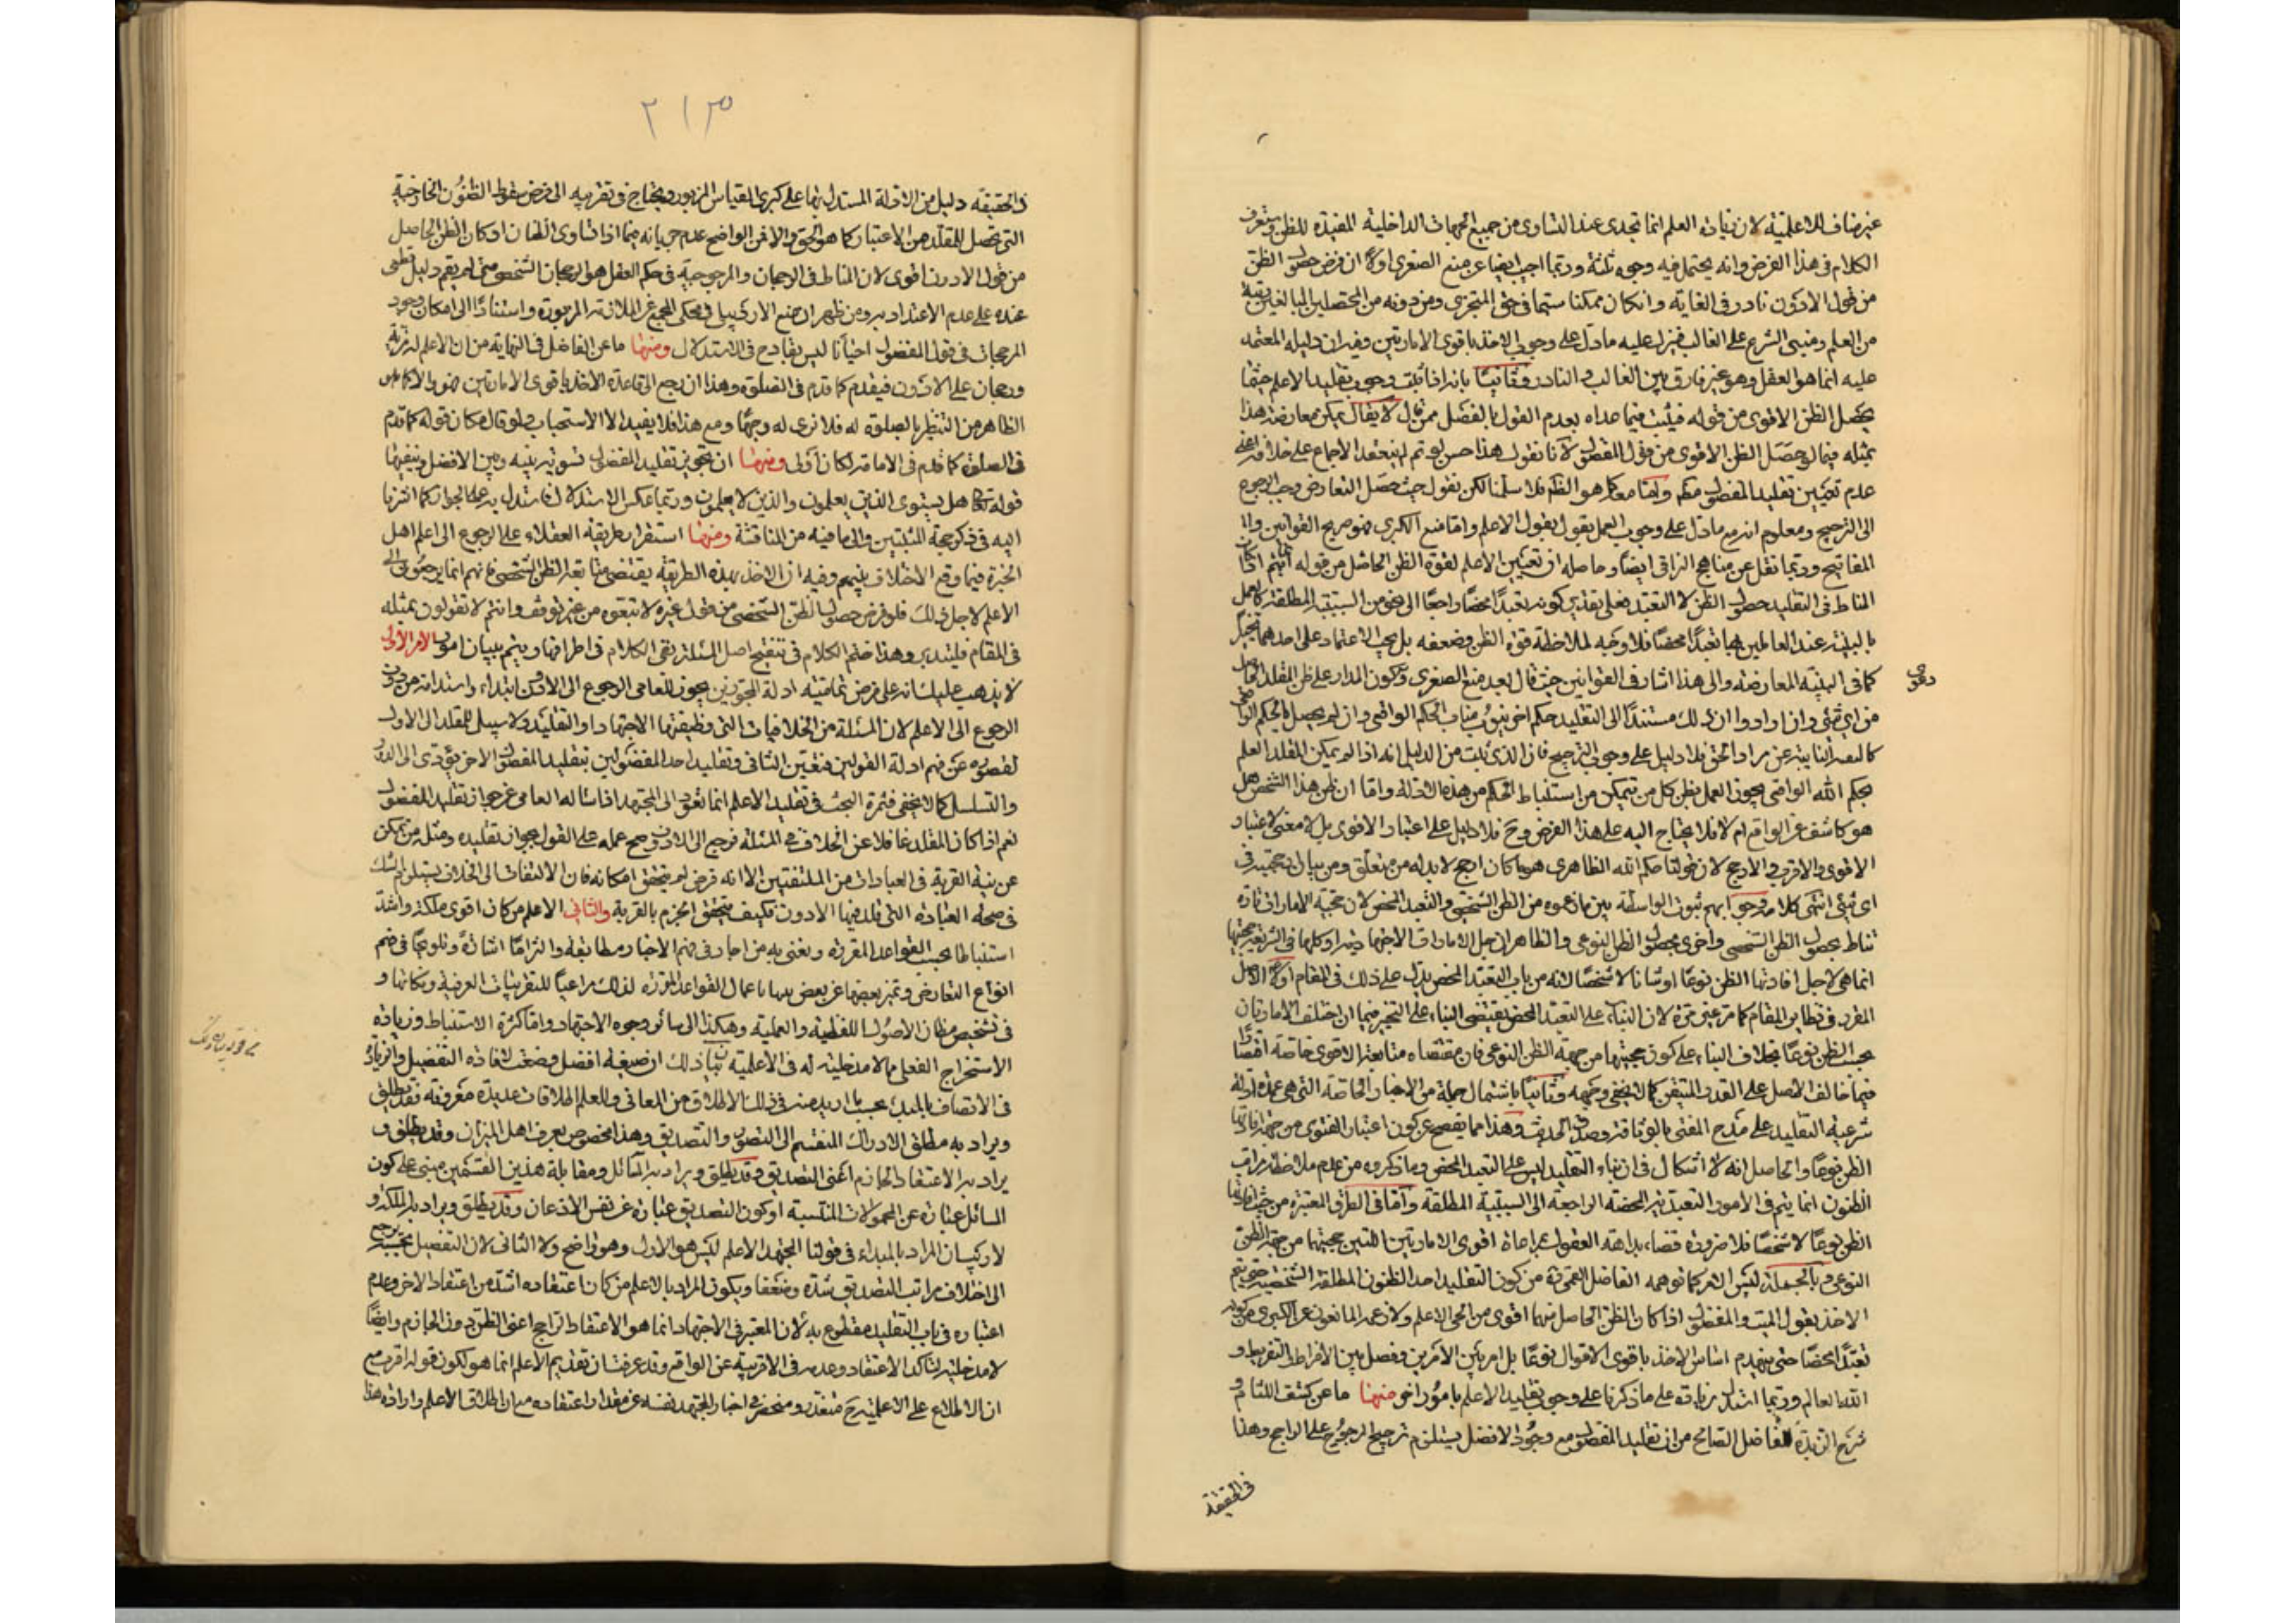 غير مناف للاعلمية لان زيادة العلم انما تجدى عند التساوى من جميع الجهات الداخلية المفيدة للظن وستعرف
الكلام فى هذا الفرض وانه يحتمل فيه وجوه ثلثة وربما اجيب ايضا عن منع الصغرى اولا ان فرض حصول الظن
من قول الادون نادر فى الغاية وان كان ممكنا سيما فى حق المتجزى ومن دونه من المحصلين البالغين رتبة
من العلم ومبنى الشرع على الغالب فينزل عليه ما دل على وجوب الاخذ باقوى الامارتين وفيه ان دليله المعتمد
عليه انما هو العقل وهو غير فارق بين الغالب والنادر وثانيا بانه اذا ثبت وجوب تقليد الاعلم حيثما
يحصل الظن الاقوى من قوله فيثبت فيما عداه بعدم القول بالفصل ممن قال لا يقال يمكن معارضة هذا
بمثله فيما لو حصل الظن الاقوى من قول المفضول لانا نقول هذا حسن لو تم لم ينعقد الاجماع على خلافه اعنى
عدم تعيين تقليد المفضول مط واما معه كما هو الظاهر فلا سلمنا لكن نقول حيث حصل التعارض وجب الرجوع
الى الترجيح ومعلوم انه مع ما دل على وجوب العمل بقول الاعلم واما منع الكبرى فهو صريح القوانين و
المفاتيح وربما نقل عن مناهج النراقى ايضا وحاصله ان تعيين الاعلم لقوة الظن الحاصل من قوله انما يتم اذا كان
المناط فى التقليد حصول الظن لا التعبد فعلى تقدير كونه تعبدا محضا راجعا الى نحو من السببية المطلقة كالعمل
بالبينة عند العاملين بها تعبدا محضا فلا وجه لملاحظة قوة الظن وضعفه بل يجب الاعتماد على احدهما تخييرا
كما فى البينة المعارضة والى هذا اشار فى القوانين حيث قال بعد منع الصغرى وكون المدار على ظن المقلد الحاصل
دعوى
من اى شئ وان ارادوا ان ذلك مستندا الى التقليد حكم اخر ينوب مناب الحكم الواقعى وان لم يحصل بالحكم الواقعى
كالبينة النائبة عن مراد الحق فلا دليل على وجوب الترجيح فان الذى ثبت من الدليل انه اذا لم يمكن للمقلد العلم
بحكم الله الواقعى يجوز العمل بظن كل من يتمكن من استنباط الحكم من هذه الادلة واما ان ظن هذا الشخص هل
هو كاشف عن الواقع ام لا فلا يحتاج اليه على هذا الفرض وح فلا دليل على اعتبار الاقوى بل لا معنى لاعتبار
الاقوى والاقرب والارجح لان قولنا حكم الله الظاهرى هو ما كان ارجح لا بد له من متعلق ومن بيان ان حجيته فى
اى شئ انتهى كلامه وجوابهم ثبوت الواسطة بين ما زعموه من الظن الشخصى والتعبد المحض لان حجية الامارات تارة
تناط بحصول الظن الشخصى واخرى بحصول الظن النوعى والظاهر ان جل الامارات الاجتهادية او كلها فى الشريعة حجيتها
انما هى لاجل افادتها الظن نوعا او شانا لا شخصا لا انه من باب التعبد المحض يدل على ذلك فى المقام اولا الاصل
المقرر فى نظائر المقام كما مر غير مرة لان البناء على التعبد المحض يقتضى البناء على التخيير فيما ان اختلف الامارتان
بحسب الظن نوعا بخلاف البناء على كون حجيتها من جهة الظن النوعى فان مقتضاه متابعة الاقوى خاصة اقتصارا
فيما خالف الاصل على القدر المتيقن كما لا يخفى وجهه وثانيا باشتمال جملة من الاخبار الخاصة التى هى عمدة ادلة
شرعية التقليد على مدح المفتى بالوثاقة وصدق الحديث وهذا مما يفصح عن كون اعتبار الفتوى من جهة افادتها
الظن نوعا والحاصل انه لا اشكال فى ان بناء التقليد ليس على التعبد المحض وما ذكروه من عدم ملاحظة مراتب
الظنون انما يتم فى الامور التعبدية المحضة الراجعة الى السببية المطلقة واما فى الطرق المعتبرة من حيث افادتها
الظن نوعا لا شخصا فلا ضرورة قضاء بداهة العقول بمراعاة اقوى الامارتين اللتين حجيتهما من جهة الظن
النوعى وبالجملة ليس الامر كما توهمه الفاضل القمى ره من كون التقليد احد الظنون المطلقة الشخصية حتى يتم
الاخذ بقول الميت والمفضول اذا كان الظن الحاصل منهما اقوى من الحى الاعلم ولا زعمه المانعون عن الكبرى من كونه
تعبدا محضا حتى ينهدم اساس الاخذ باقوى الاقوال نوعا بل امر بين الامرين وفصل بين الافراط والتفريط و
الله العالم وربما استدل زيادة على ما ذكرنا على وجوب تقليد الاعلم بامور اخر منها ما عن كشف اللثام و
شرح الزبدة للفاضل الصالح من ان تقليد المفضول مع وجود الافضل يستلزم ترجيح المرجوح على الراجح وهذا
فى الحقيقة
٢١٣
فى الحقيقة دليل من الادلة المستدل بها على كبرى القياس المزبور ويحتاج فى تقريبه الى فرض سقوط الظنون الخارجية
التى تحصل للمقلد من الاعتبار كما هو الحق والا فمن الواضح عدم جريانه فيما اذا تساوى الظنان او كان الظن الحاصل
من قول الادون اقوى لان المناط فى الرجحان والمرجوحية فى حكم العقل هو الرجحان الشخصى متى لم يقم دليل قطعى
عنده على عدم الاعتداد به ومن ظهر ان منع الاردبيلى فى محكى المجمع عن الملازمة المزبورة واستنادا الى امكان وجود
المرجحات فى قول المفضول احيانا ليس بقادح فى الاستدلال ومنها ما عن الفاضل فى النهاية من ان الاعلم له مزية
ورجحان على الادون فيقدم كما قدم فى الصلوة وهذا ان رجع الى قاعدة الاخذ باقوى الامارتين فهو والا كما هو
الظاهر من التنظير بالصلوة له فلا نرى له وجها ومع هذا فلا يفيد الا الاستحباب ولو قال مكان قوله كما قدم
فى الصلوة كما قدم فى الامامة لكان اولى ومنها ان تجويز تقليد المفضول تسوية بينه وبين الافضل وينفيها
قوله تعالى هل يستوى الذين يعلمون والذين لا يعلمون وربما عكس الاستدلال فاستدل به على الجواز كما اشرنا
اليه فى ذكر حجة المثبتين والى ما فيه من المناقشة ومنها استقرار طريقة العقلاء على الرجوع الى اعلم اهل
الخبرة فيما وقع الاختلاف بينهم وفيه ان الاخذ بهذه الطريقة يقتضى متابعة الظن الشخصى فانهم انما يرجعون الى
الاعلم لاجل ذلك فلو فرض حصول الظن الشخصى من قول غيره لاتبعوه من غير توقف وانتم لا تقولون بمثله
فى المقام فليتدبر وهذا ختم الكلام فى تنقيح اصل المسئلة بقى الكلام فى اطرافها ويتم ببيان امور الامر الاول
لا يذهب عليك انه على فرض تمامية ادلة المجوزين يجوز للعامى الرجوع الى الادون ابتداء واستدامة من دون
الرجوع الى الاعلم لان المسئلة من الخلافيات التى وظيفتها الاجتهاد او التقليد ولا سبيل للمقلد الى الاول
لقصوره عن فهم ادلة القولين فتعين الثانى وتقليد احد المفضولين بتقليد المفضول الاخر يؤدى الى الدور
والتسلسل كما لا يخفى فثمرة البحث فى تقليد الاعلم انما تعود الى المجتهد اذا ساله العامى عن جواز تقليد المفضول
نعم اذا كان المقلد غافلا عن الخلاف فى المسئلة فرجع الى الادون صح عمله على القول بجواز تقليده ومثله من تمكن
عن نية القربة فى العبادات من الملتفتين الا انه فرض لم يتحقق امكانه فان الالتفات الى الخلاف يستلزم الشك
فى صحة العبادة التى قلد فيها الادون فكيف يتحقق الجزم بالقربة والثانى الاعلم من كان اقوى ملكة واشد
استنباطا بحسب القواعد المقررة ونعنى به من اجاد فى فهم الاخبار مطابقة والتزاما اشارة وتلويحا فى فهم
انواع التعارض وتميز بعضها عن بعض بينها باعمال القواعد المقررة لذلك مراعيا للتقريبات العرفية ونكاتها و
فى تشخيص مظان الاصول اللفظية والعملية وهكذا الى سائر وجوه الاجتهاد واما كثرة الاستنباط وزيادة
الاستخراج الفعلى مما لا مدخلية له فى الاعلمية بيان ذلك ان صيغة افضل وضعت لافادة التفضيل والزيادة
فى الاتصاف بالمبدء بحسب ما اريد منه فى ذلك الاطلاق من المعانى وللعلم اطلاقات عديدة معروفة فقد يطلق
ويراد به مطلق الادراك المنقسم الى التصور والتصديق وهذا مخصوص بعرف اهل الميزان وقد يطلق و
يراد به الاعتقاد الجازم اعنى التصديق وقد يطلق ويراد به المسائل ومقابلة هذين القسمين مبنى على كون
المسائل عبارة عن المحمولات المنتسبة او كون التصديق عبارة عن نفس الاذعان وقد يطلق ويراد به الملكة و
لا ريب ان المراد بالمبدء فى قولنا المجتهد الاعلم ليس هو الاول وهو واضح ولا الثانى لان التفضيل بحسبه يرجع
الى اختلاف مراتب التصديق شدة وضعفا ويكون المراد بالاعلم من كان اعتقاده اشد من اعتقاد الاخر وعدم
اعتباره فى باب التقليد مقطوع به لان المعتبر فى الاجتهاد انما هو الاعتقاد الراجح اعنى الظن دون الجازم وايضا
لا مدخلية لتاكد الاعتقاد وعدمه فى الاقربية عن الواقع وقد عرفت ان تقديم الاعلم انما هو لكون قوله اقرب مع
ان الاطلاع على الاعلمية ح متعذر ومنحصر فى اخبار المجتهد نفسه عن مقدار اعتقاده مع ان اطلاق الاعلم وارادة هذا